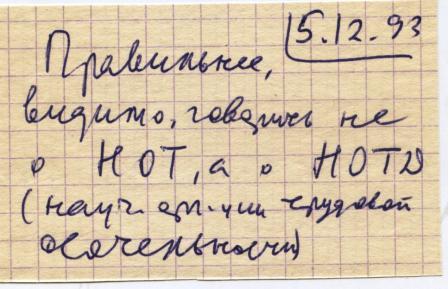 5.12.93
Правильнее,
видимо, говорить не
о НОТ, а о НОТД
(науч. орг-ции трудовой
деятельности)